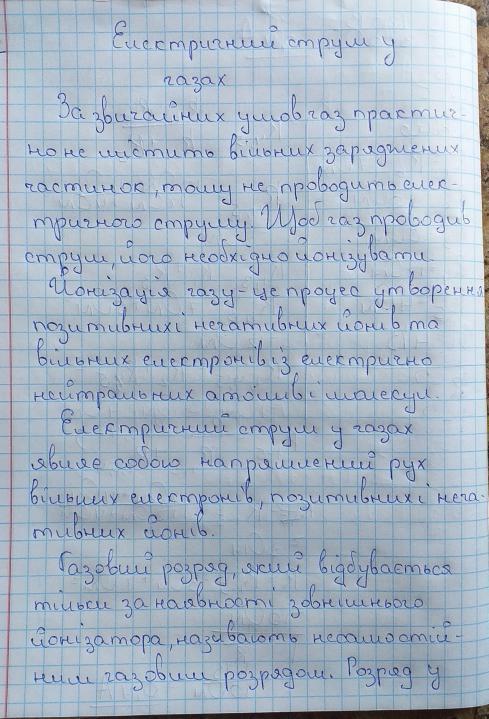 Електричний струм у
газах
За звичайних умов газ практич-
но не містить вільних заряджених
частинок, тому не проводить елек-
тричного струму. Щоб газ проводив
струм, його необхідно йонізувати.
Йонізація газу - це процес утворення
позитивних і негативних йонів та
вільних електронів із електрично
нейтральних атомів і молекул.
Електричний струм у газах
являє собою напрямлений рух
вільних електронів, позитивних і нега-
тивних йонів.
Газовий розряд, який відбувається
тільки за наявності зовнішнього
йонізатора, називають несамостій-
ним газовим розрядом. Розряд у